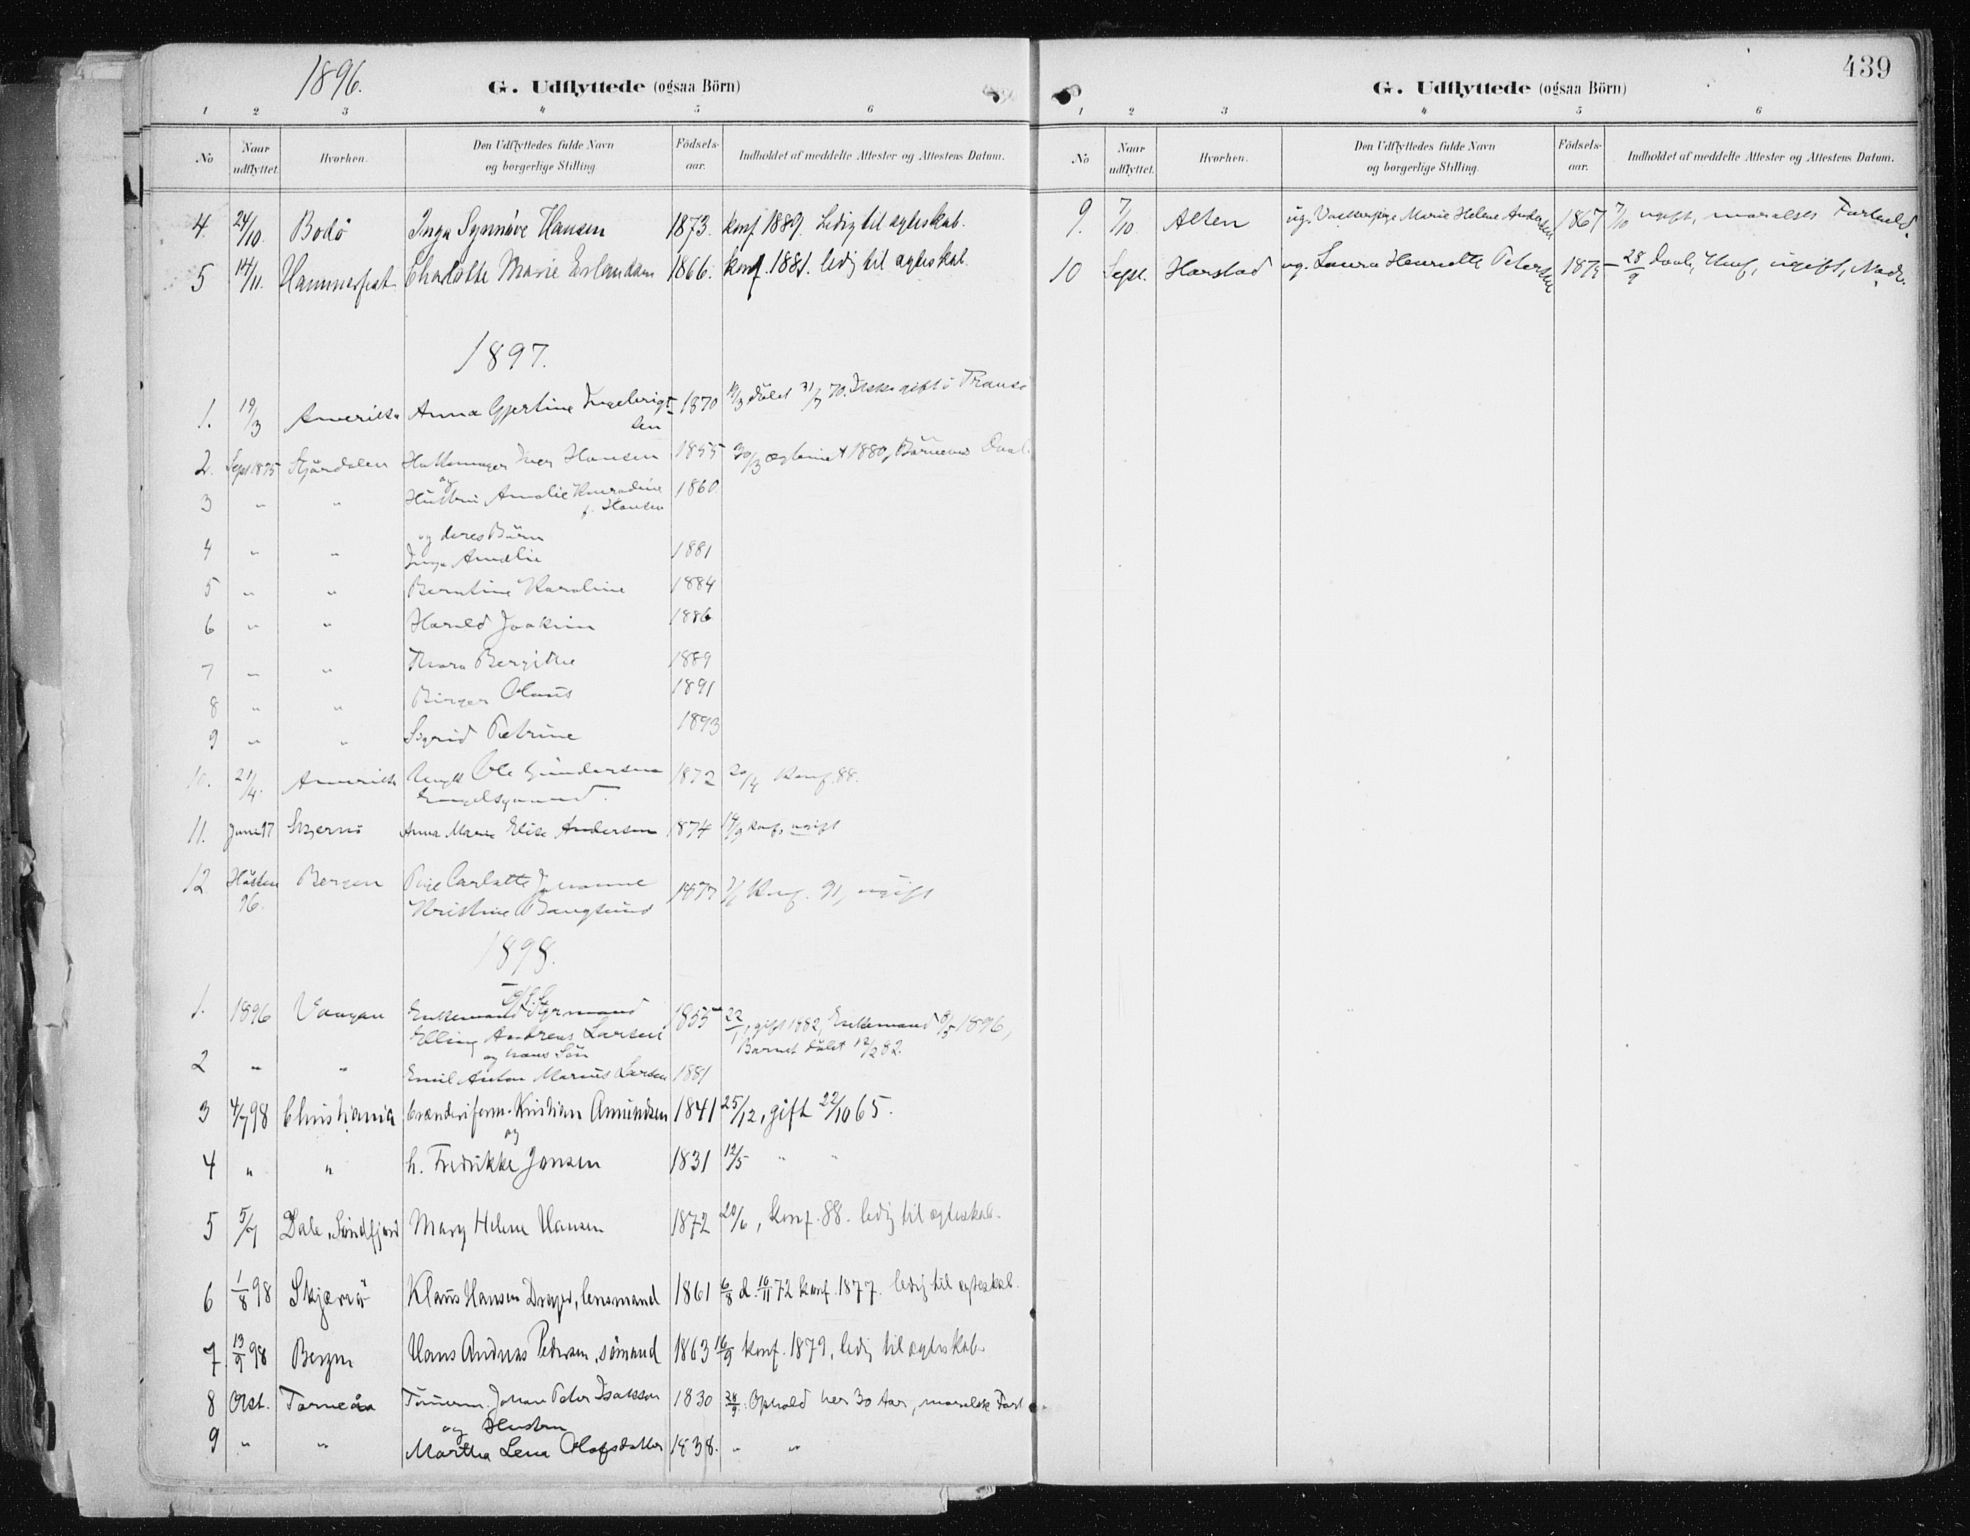 1896.
G. Udflyttede (ogsaa Börn)
1 2 3 4 5 6
No Naar udflyttet. Hvorhen. Den Udflyttedes fulde Navn og borgerlige Stilling. Födsels-aar. Indholdet af meddelte Attester og Attestens Datum.
4. 24/10. Bodö Inga Synnöve Hansen 1873. konf. 1889. Ledig til ægteskab.
5 14/11. Hammerfest Charlotte Marie Erlandsen 1866. konf. 1881. ledig til ægteskab.
1897.
1. 19/3 Amerika Anna Gjertine Ingebrigt-
sen 1870 19/3 döbt 31/7 70. Ikke gift i Tromsö
2. Sept 1895 Stjördalen Hattemager Iver Hansen 1855 30/3
og
3 " " Hustru Amalie Konradine 1860
f. Hansen
og deres Börn
4 " " Inga Amalie 1881
5 " " Berntine Karoline 1884
6 " " Harald Joakim 1886
7 " " Thora Bergithe 1889
8 " " Birger Olaus 1891
9 " " Sigrid Petrine 1893
10. 21/4. Amerika Ungk Ole Gundersen 1872 20/4 Konf. 88.
11. Juni 97 Skjervö Anna Marie Elise Andersen 1874 14/9 konf, ugift
12 Hösten Bergen Pige Carlotte Johanne 1877 Konf. 91, ugift
96. Kristine Bangsund
1898.
1. 1896 Vaagan Enkemand Styrmand 1855 22/1, gift 1882, Enkemand 8/5 1896,
Elling Andreas Larsen Barnet döbt 12/2 82.
og hans Sön
2 " " Emil Anton Marius Larsen 1881
3 4/7 98 Christiania Kristian Amundsen 1841 25/12, gift 22/10 65.
og
4 " " h. Fredrikke Jonsen 1831 12/5 " "
5 5/7 Dale, Söndfjord Mary Helene Hansen 1872 20/6, konf. 88. ledig til ægteskab.
6 1/8 98 Skjærvö Klaus Hansen Dreyer, lensmand 1861 6/8 d. 10/11 72 konf. 1877. ledig til ægteskab.
7 13/9 98 Bergen Hans Andreas Pedersen, sömand 1863 16/9 konf. 1879, ledig til ægteskab.
8 Okt. Torneåa Tömmerm. Johan Peter Isaksson 1830 28/9. Ophold her 30 Aar, moralsk Forh
og Hustru
9 " " Martha Lena Olofsdatter 1838. " "
439
G. Udflyttede (ogsaa Börn)
1 2 3 4 5 6
No Naar udflyttet. Hvorhen. Den Udflyttedes fulde Navn og borgerlige Stilling. Födsels-aar. Indholdet af meddelte Attester og Attestens Datum.
9. 7/10. Alten ug. Marie Helene Andersen 1867 7/10 ugift, moralsk Forhold.
10 Sept. Harstad ug. Laura Henriette Petersen 1875 28/9 Daab, Konf, ugift,